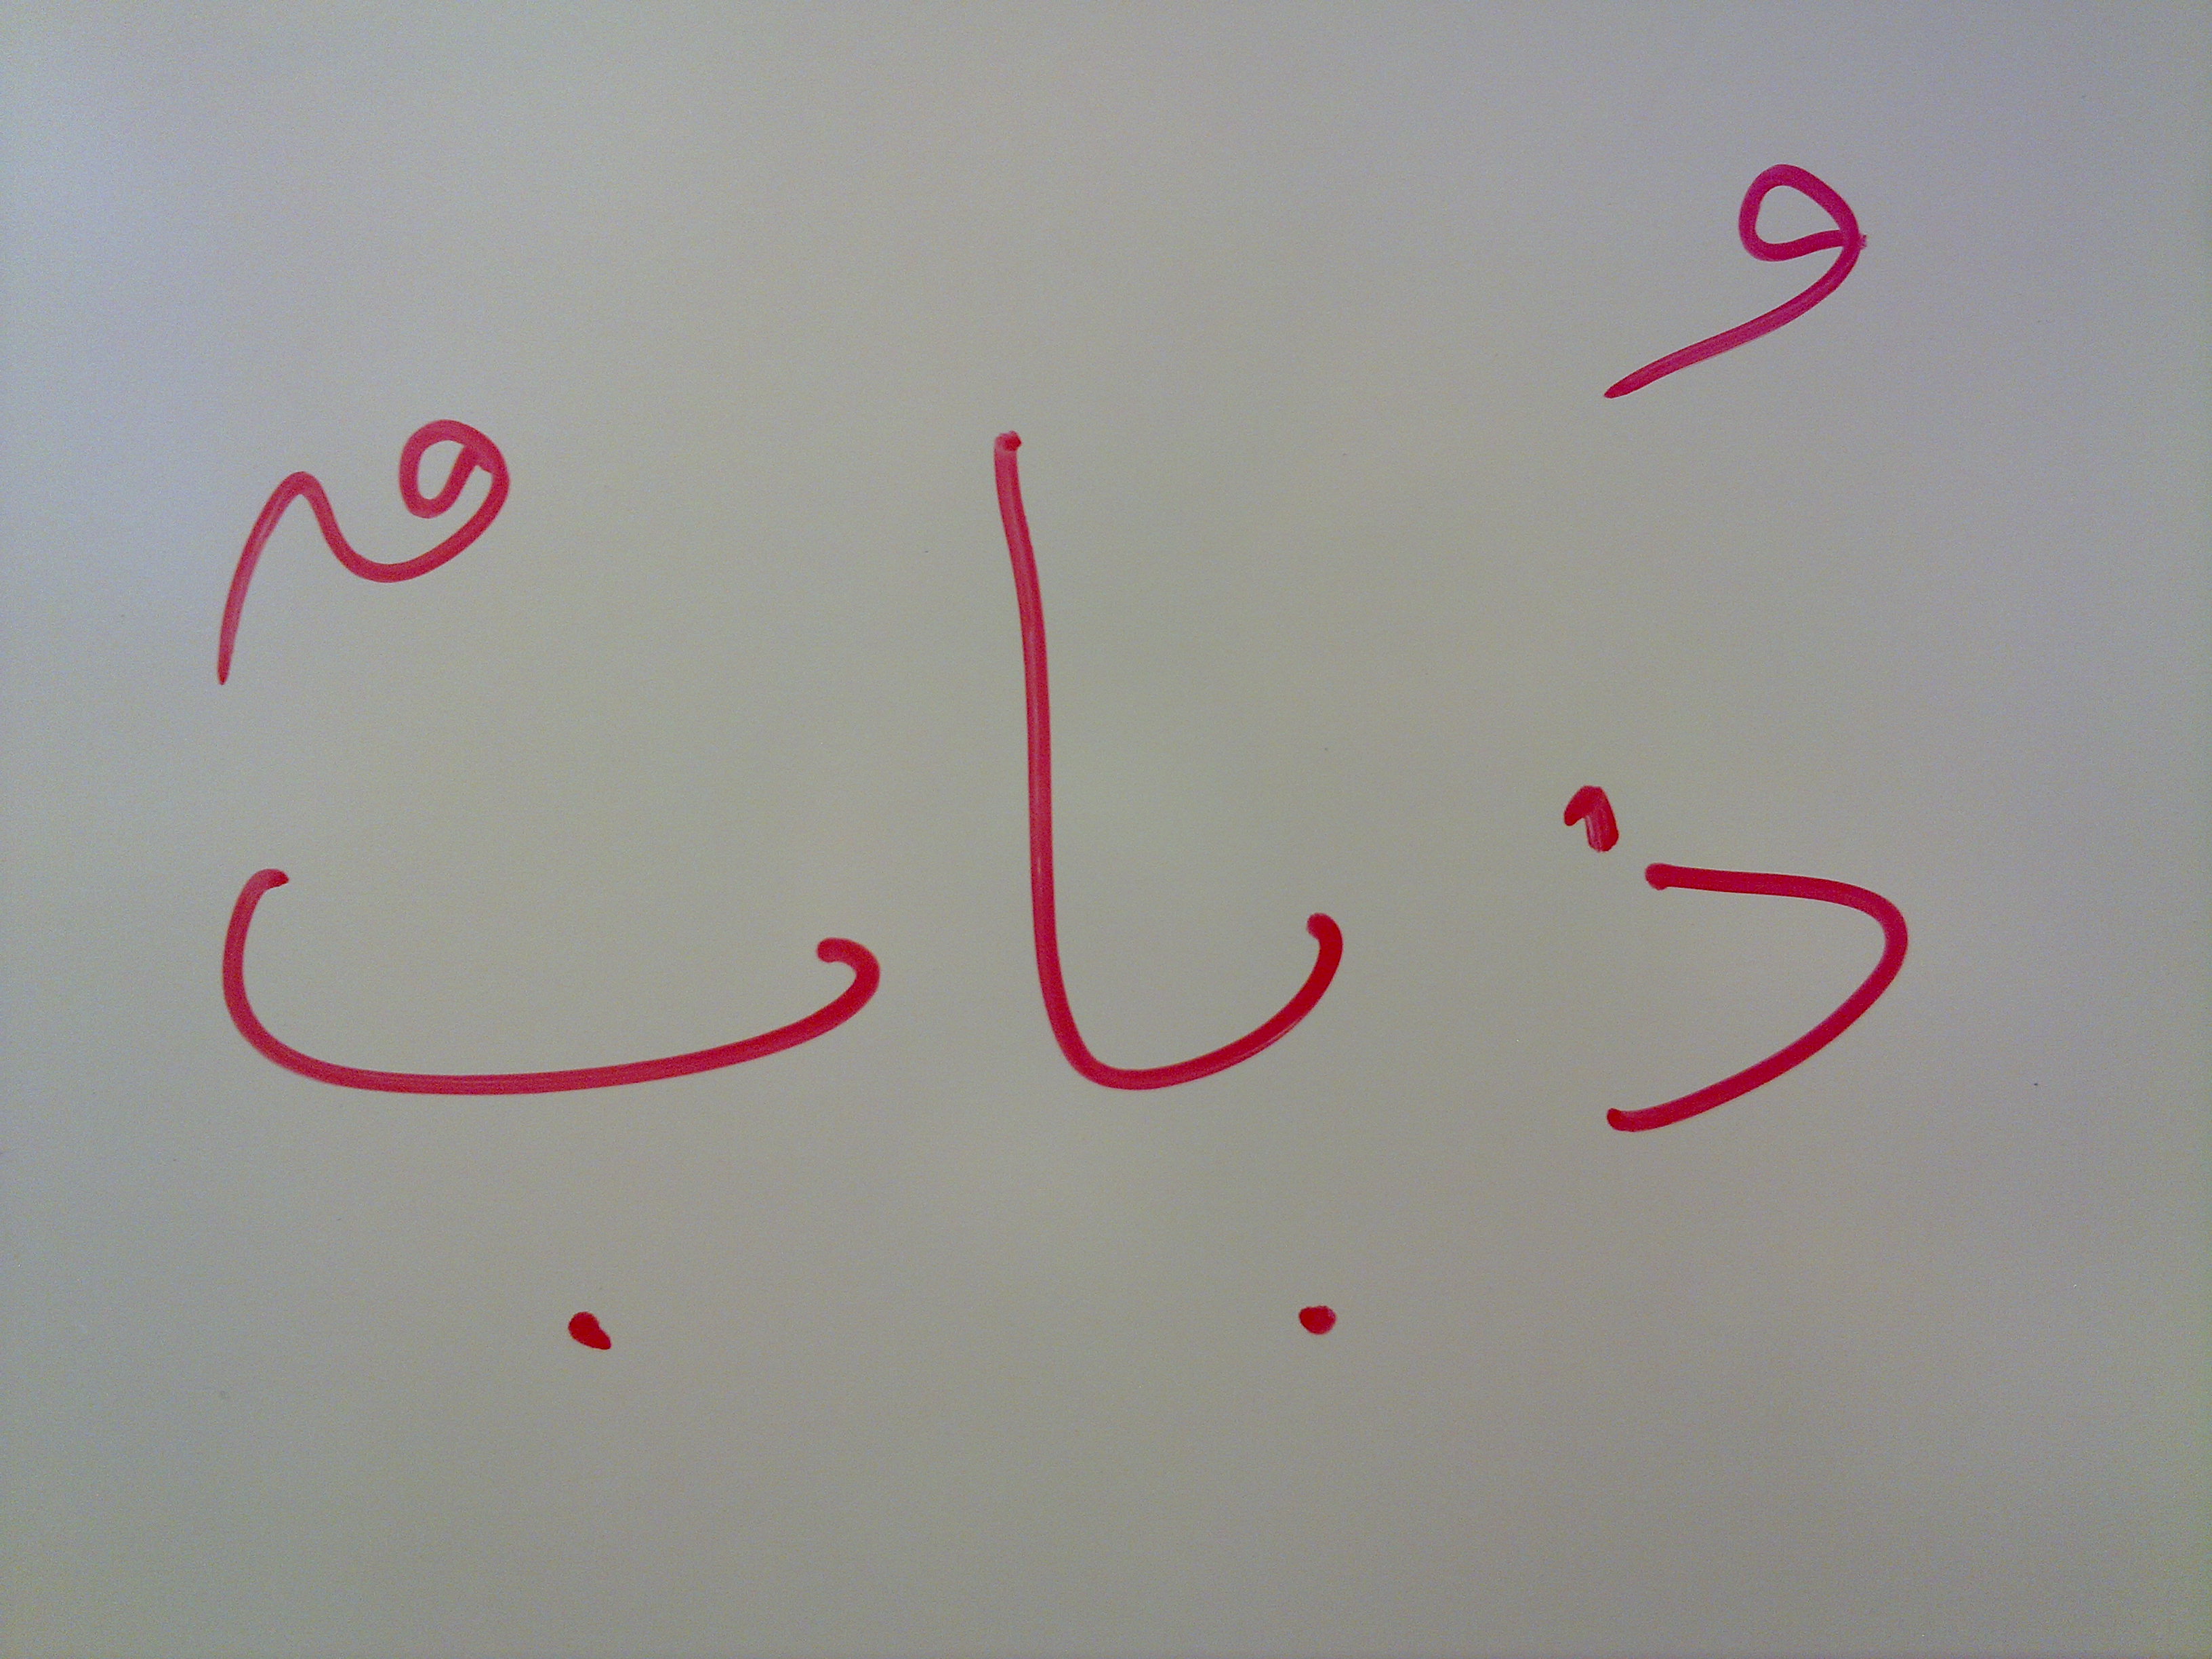 ذُبابٌ